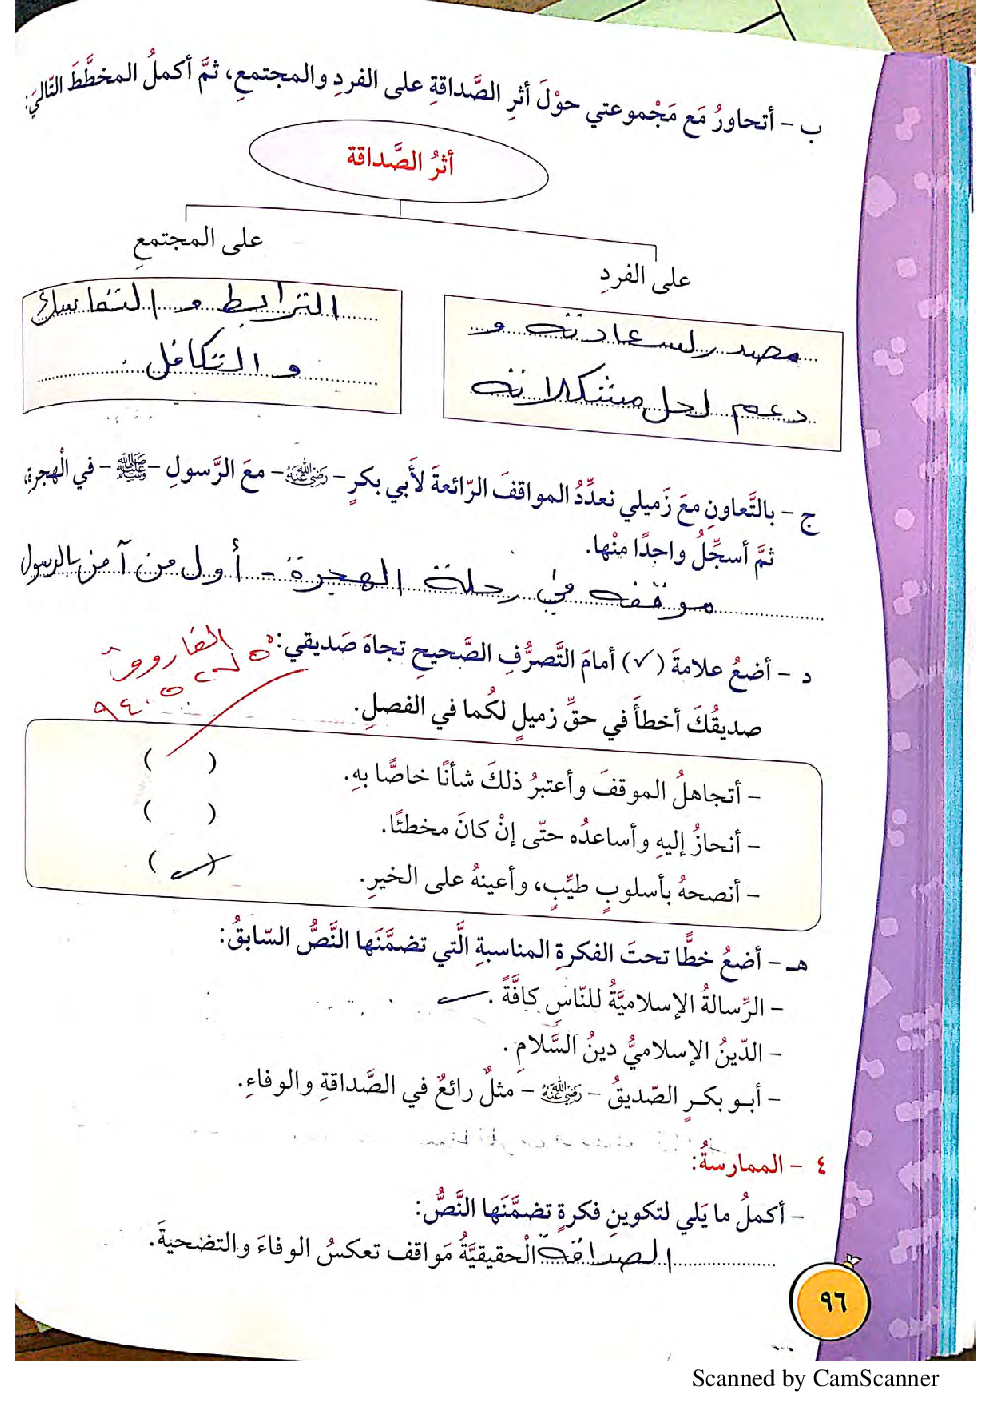 ب - أتحاورُ مَع مَجْموعتي حوْلَ أثرِ الصَّداقةِ على الفردِ والمجتمعِ، ثمَّ أكملُ المخطَّطَ التّاليَ:
أثرُ الصَّداقة
على الفردِ
على المجتمعِ
مصدر لسعادته و
دعم لحل مشكلاته
الترابط و التماسك
و التكافل
ج - بالتَّعاونِ معَ زَميلي نعدِّدُ المواقفَ الرّائعةَ لأبي بكرٍ - رضي الله عنه - معَ الرَّسولِ - ﷺ - في الْهجرةِ،
ثمَّ أسجِّلُ واحدًا منْها.
موقفه في رحلة الهجرة - أول من آمن بالرسول
د - أضعُ علامةَ (✓) أمامَ التَّصرُّفِ الصَّحيحِ تجاهَ صَديقي:
الفاروق
صديقُكَ أخطأَ في حقِّ زميلٍ لكُما في الفصلِ.
- أتجاهلُ الموقفَ وأعتبرُ ذلكَ شأنًا خاصًّا بهِ. ( )
- أنحازُ إليهِ وأساعدُه حتّى إنْ كانَ مخطئًا. ( )
- أنصحهُ بأسلوبٍ طيِّبٍ، وأعينهُ على الخيرِ. (✓)
هـ - أضعُ خطًّا تحتَ الفكرةِ المناسبةِ الَّتي تضمَّنَها النَّصُّ السّابقُ:
- الرِّسالةُ الإسلاميَّةُ للنّاسِ كافَّةً.
- الدّينُ الإسلاميُّ دينُ السَّلامِ.
- أبـو بكـرٍ الصّديقُ - رضي الله عنه - مثلٌ رائعٌ في الصَّداقةِ والوفاءِ.
٤ - الممارسةُ:
- أكملُ ما يَلي لتكوينِ فكرةٍ تضمَّنَها النَّصُّ:
الصداقة الْحقيقيَّةُ مَواقف تعكسُ الوفاءَ والتضحيةَ.
٩٦
Scanned by CamScanner